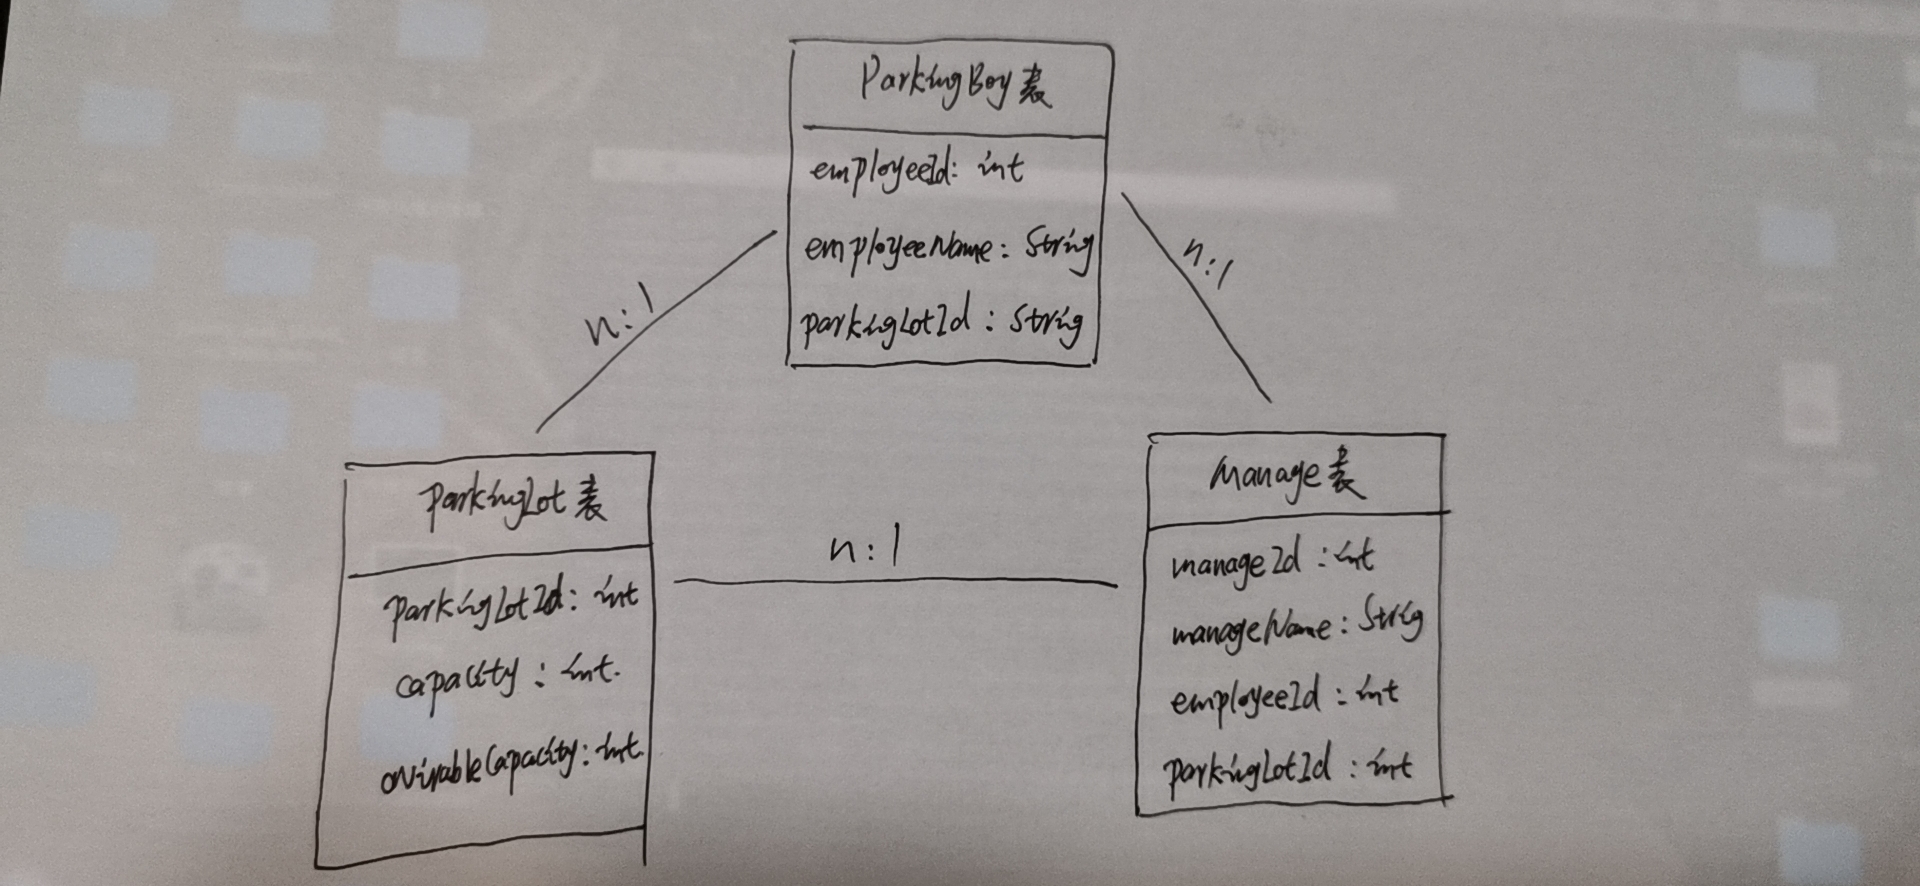 ParkingBoy表
employeeId: int
employeeName: String
parkingLotId: String
n:1
n:1
ParkingLot表
parkingLotId: int
capacity: int.
avirableCapacity: int.
n:1
Manage表
manageId: int
manageName: String
employeeId: int
parkingLotId: int